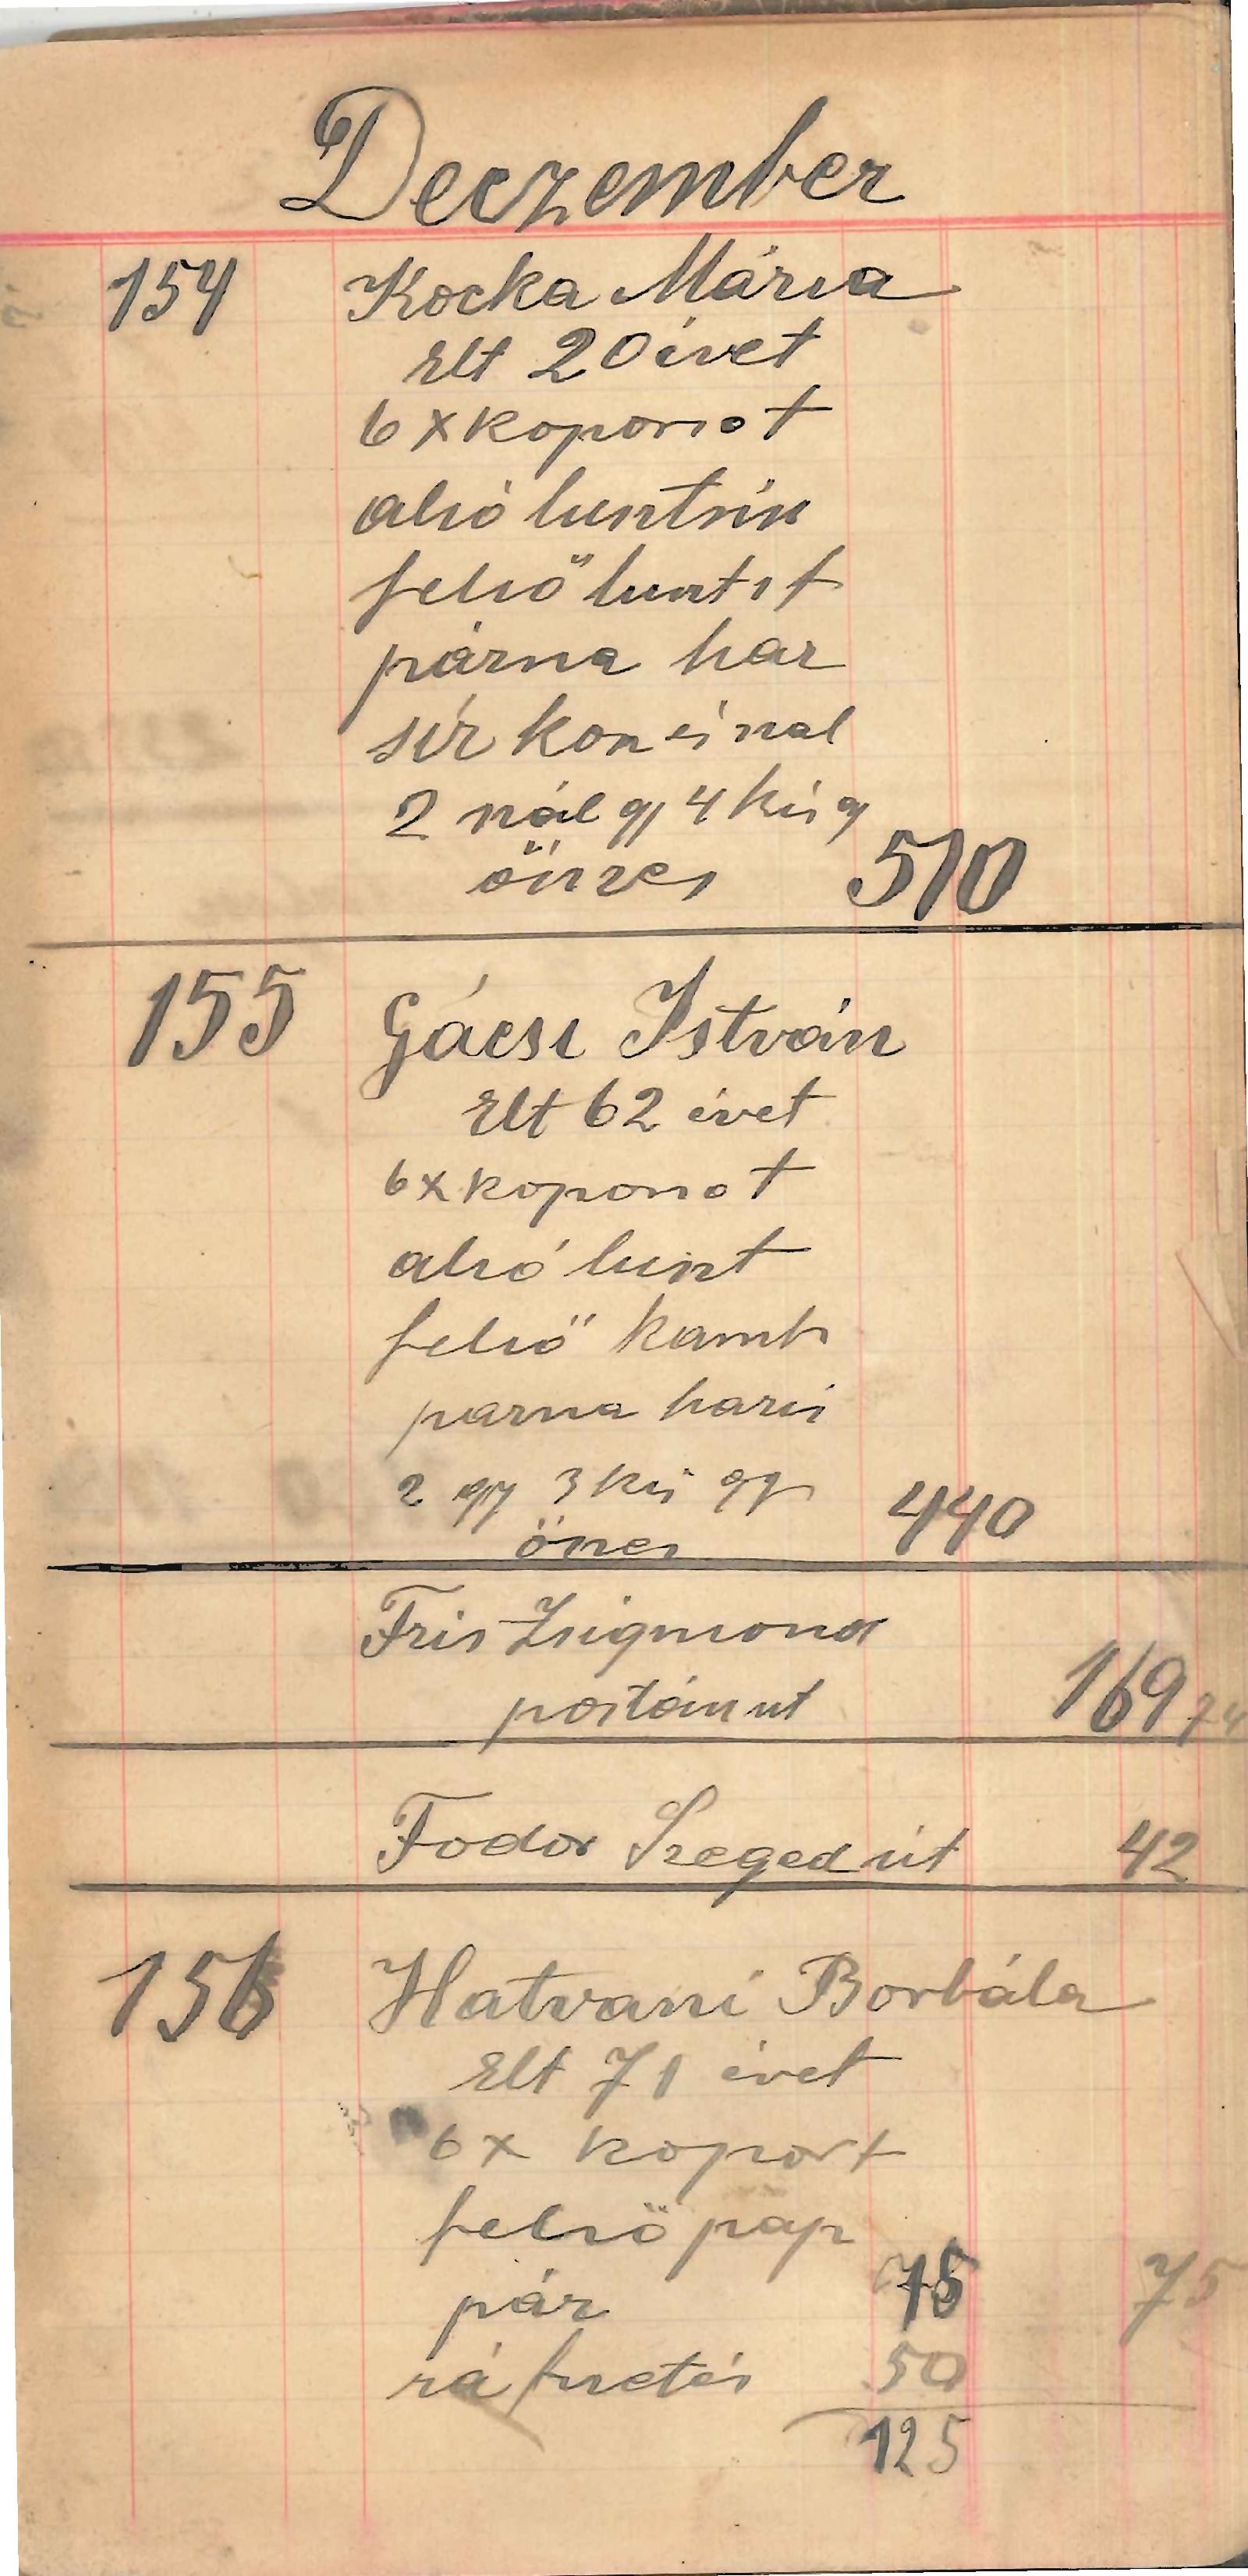 Deczember
154 Kocka Mária
Elt 20 évet
6 x koporsot
alsó lusztrin
felső luszt
párna har
sír kon és nal
2 szál gy 4 kis g
öszves 510
155 Gácsi István
Elt 62 évet
6 x koporsot
alsó luszt
felső kamb
parna haris
2 gy 3 kis gy
öszes 440
Fris Zsigmond
postán ut 169 74
Fodor Szeged út 42
156 Hatvani Borbála
Elt 71 évet
6 x koport
felső pap
pár 75 75
rá fizetés 50
125